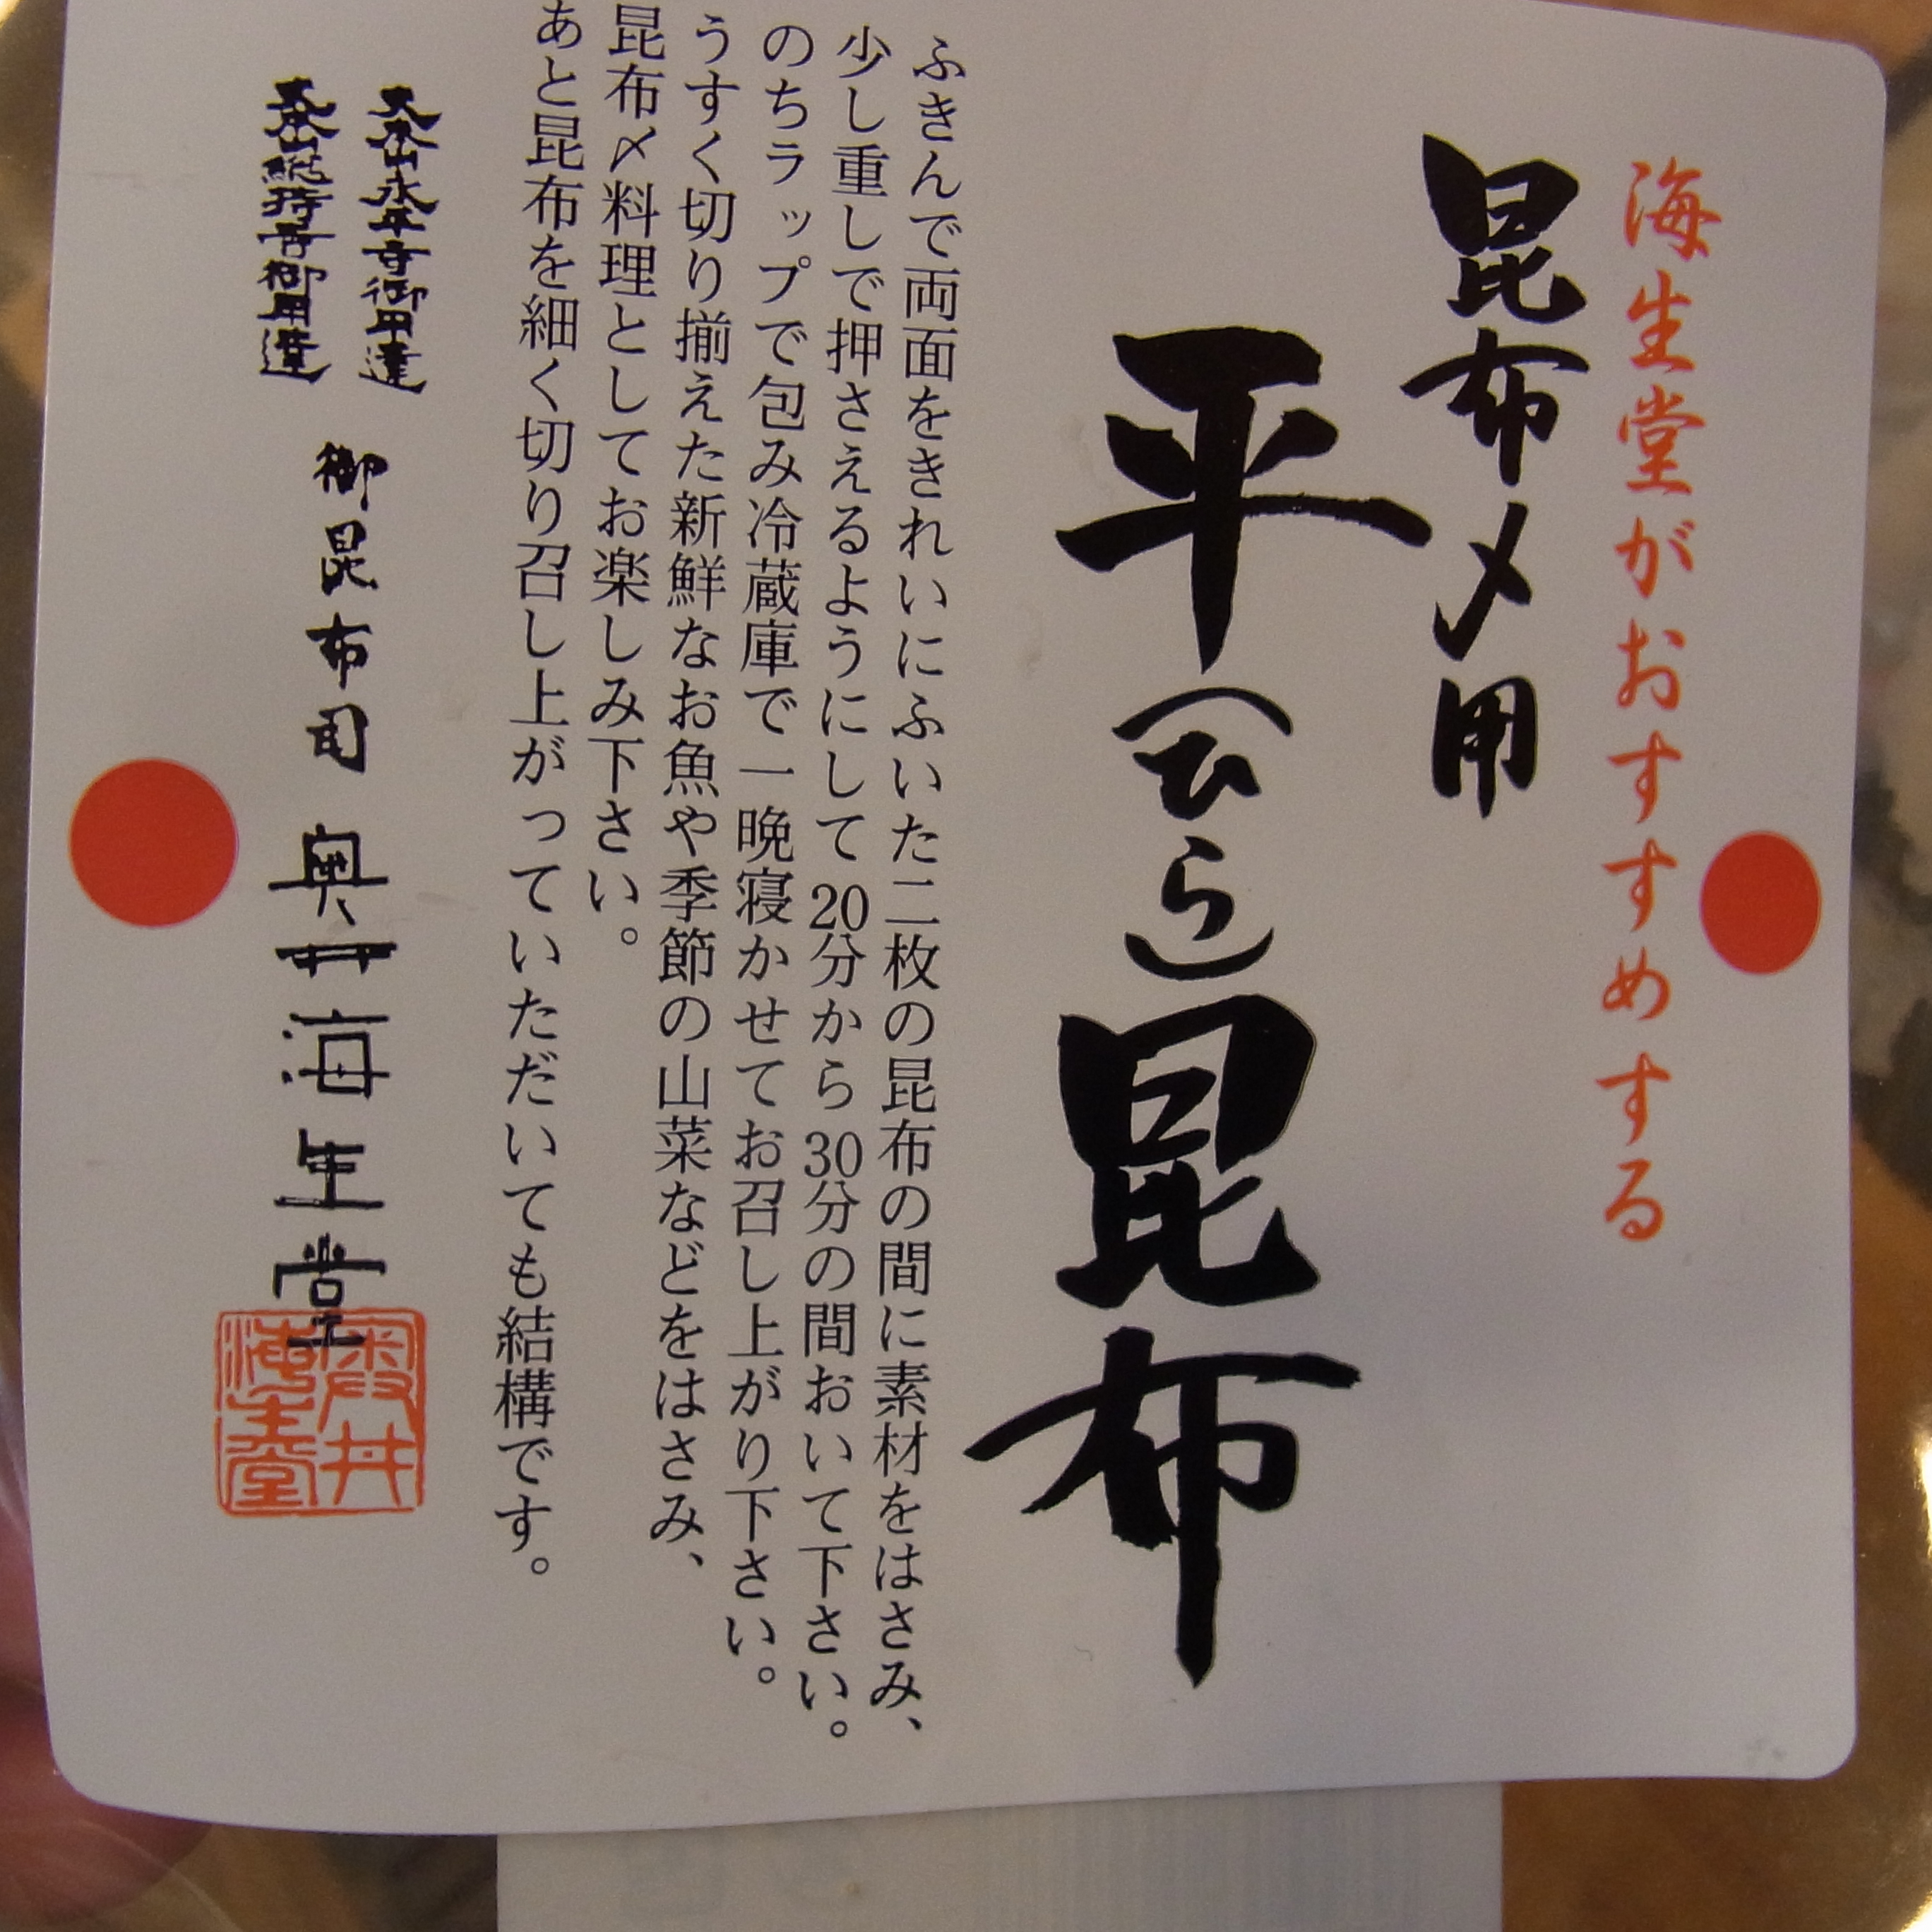 海生堂がおすすめする
昆布〆用
平(ひら)昆布
ふきんで両面をきれいにふいた二枚の昆布の間に素材をはさみ、
少し重しで押さえるようにして20分から30分の間おいて下さい。
のちラップで包み冷蔵庫で一晩寝かせてお召し上がり下さい。
うすく切り揃えた新鮮なお魚や季節の山菜などをはさみ、
昆布〆料理としてお楽しみ下さい。
あと昆布を細く切り召し上がっていただいても結構です。
大本山永平寺御用達
大本山總持寺御用達
御昆布司
奥井海生堂
奥井海生堂